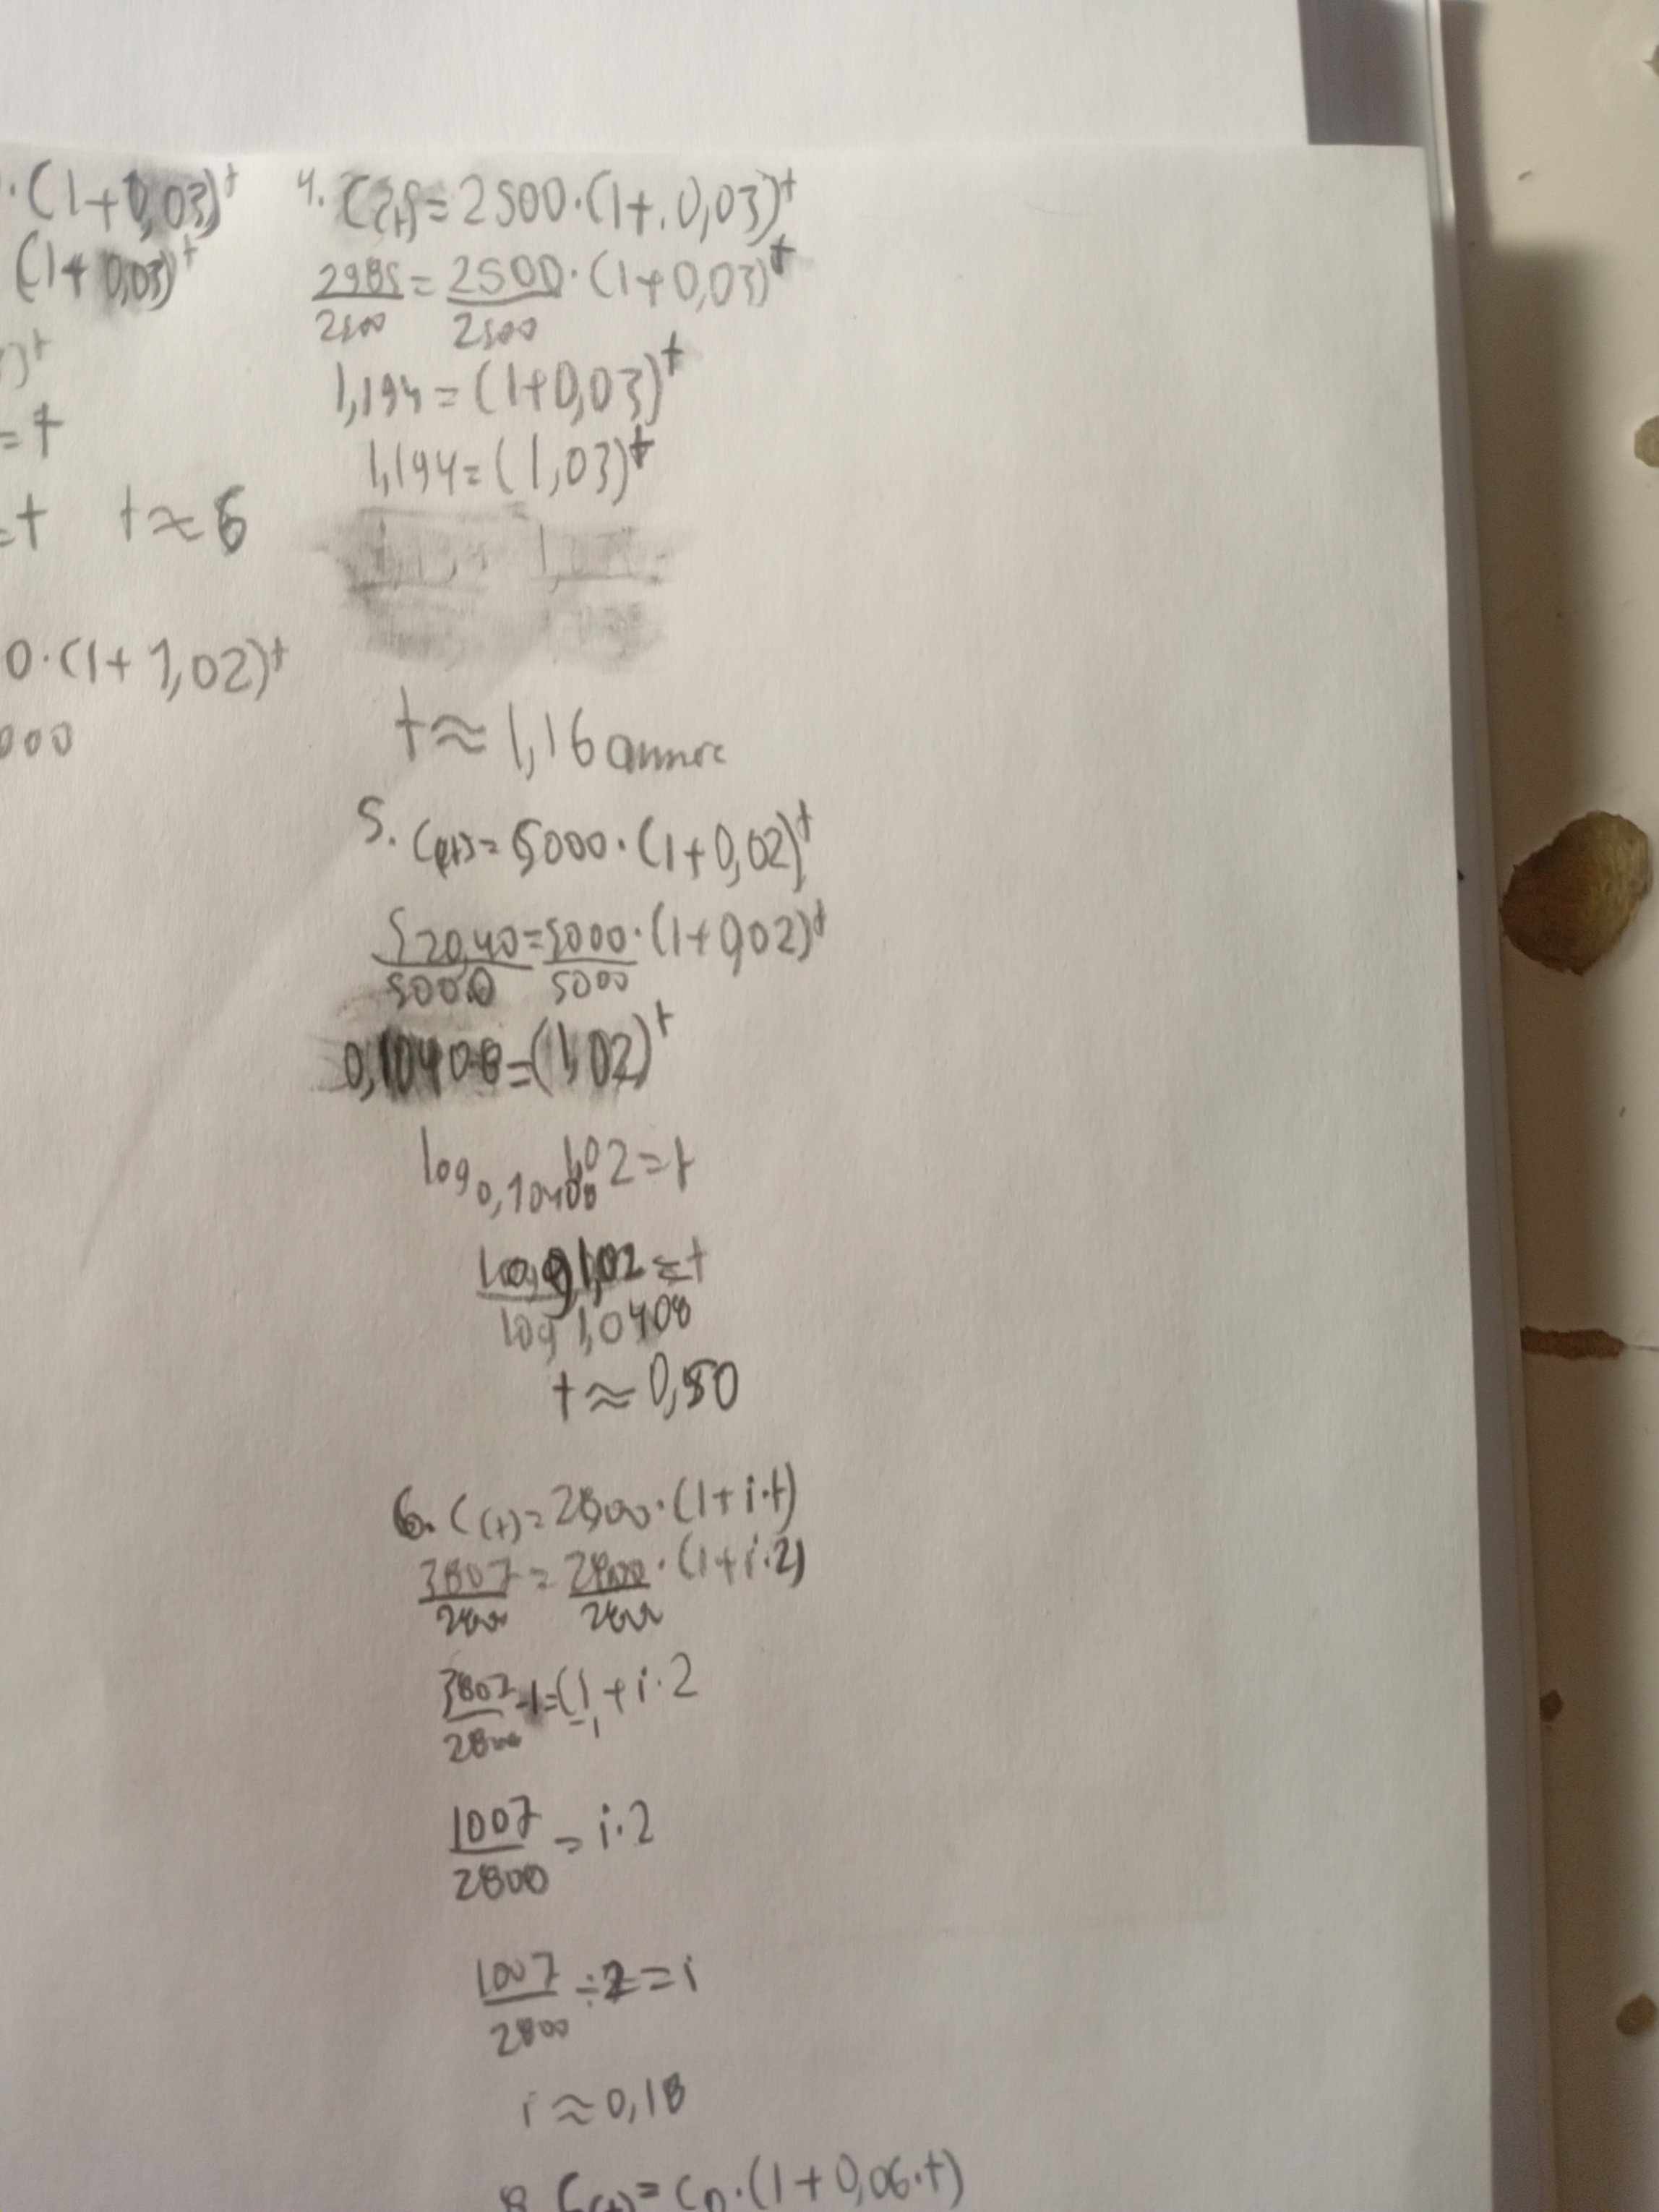 ·(1+0,03)^t
(1+0,03)^t
)^t
=t
=t t≈6
0·(1+1,02)^t
000
4. C(t)=2500·(1+.0,03)^t
2985/2500=2500/2500·(1+0,03)^t
1,194=(1+0,03)^t
1,194=(1,03)^t
t≈1,16
5. C(t)=5000·(1+0,02)^t
520,40/5000=5000/5000·(1+0,02)^t
0,10408=(1,02)^t
log_0,10408 1,02=t
log 1,02/log 1,0408=t
t≈0,50
6. C(t)=2800·(1+i·t)
3807/2800=2800/2800·(1+i·2)
3807/2800-1=(1-1+i·2
1007/2800=i·2
1007/2800÷2=i
i≈0,18
8. C(t)=C0·(1+0,06·t)